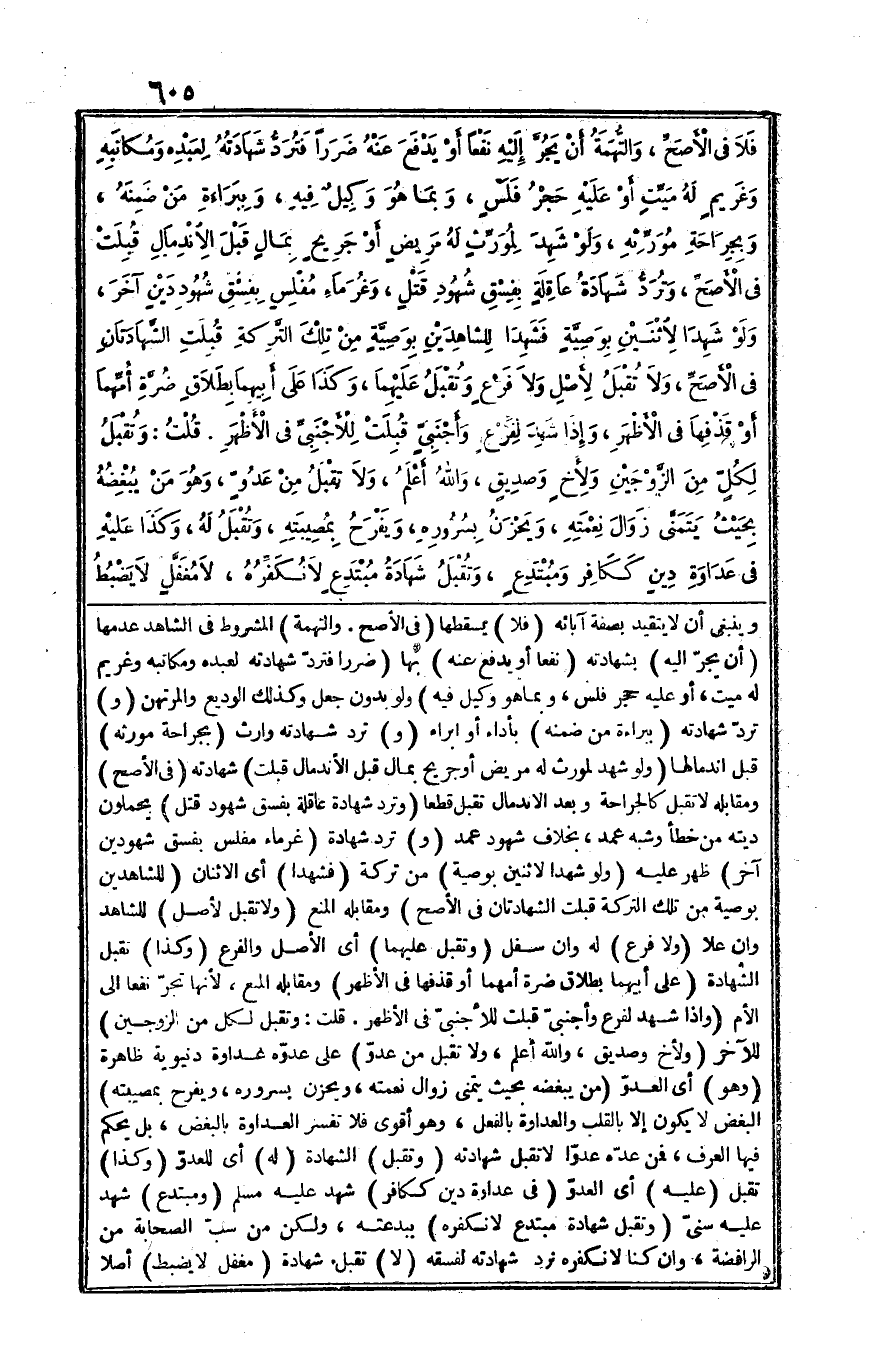 ٦٠٥
فَلَا فِى الْأَصَحِّ ، وَالتُّهَمَةُ أَنْ يَجُرَّ إِلَيْهِ نَفْعًا أَوْ يَدْفَعَ عَنْهُ ضَرَرًا فَتُرَدُّ شَهَادَتُهُ لِعَبْدِهِ وَمُكَاتَبِهِ
وَغَرِيمٍ لَهُ مَيِّتٍ أَوْ عَلَيْهِ حَجْرُ فَلَسٍ ، وَبِمَا هُوَ وَكِيلٌ فِيهِ ، وَبِبَرَاءَةِ مَنْ ضَمِنَهُ ،
وَبِجِرَاحَةِ مُوَرِّثِهِ ، وَلَوْ شَهِدَ لِمُوَرِّثٍ لَهُ مَرِيضٍ أَوْ جَرِيحٍ بِمَالٍ قَبْلَ الِأنْدِمَالِ قُبِلَتْ
فِى الْأَصَحِّ ، وَتُرَدُّ شَهَادَةُ عَاقِلَةٍ بِفِسْقِ شُهُودِ قَتْلٍ ، وَغُرَمَاءِ مُفْلِسٍ بِفِسْقِ شُهُودِ دَيْنٍ آخَرَ ،
وَلَوْ شَهِدَا لِأثْنَيْنِ بِوَصِيَّةٍ فَشَهِدَا لِلشَّاهِدَيْنِ بِوَصِيَّةٍ مِنْ تِلْكَ التَّرِكَةِ قُبِلَتِ الشَّهَادَتَانِ
فِى الْأَصَحِّ ، وَلَا تُقْبَلُ لِأَصْلٍ وَلَا فَرْعٍ وَتُقْبَلُ عَلَيْهِمَا ، وَكَذَا عَلَى أَبِيهِمَا بِطَلَاقِ ضُرَّةِ أُمِّهِمَا
أَوْ قَذْفِهَا فِى الْأَظْهَرِ ، وَإِذَا شَهِدَ لِفَرْعٍ وَأَجْنَبِيٍّ قُبِلَتْ لِلْأَجْنَبِيِّ فِى الْأَظْهَرِ . قُلْتُ : وَتُقْبَلُ
لِكُلٍّ مِنَ الزَّوْجَيْنِ وَلِأَخٍ وَصَدِيقٍ ، وَاللهُ أَعْلَمُ ، وَلَا تُقْبَلُ مِنْ عَدُوٍّ ، وَهُوَ مَنْ يُبْغِضُهُ
بِحَيْثُ يَتَمَنَّى زَوَالَ نِعْمَتِهِ ، وَيَحْزَنُ بِسُرُورِهِ ، وَيَفْرَحُ بِمُصِيبَتِهِ ، وَتُقْبَلُ لَهُ ، وَكَذَا عَلَيْهِ
فِى عَدَاوَةِ دِينٍ كَكَافِرٍ وَمُبْتَدِعٍ ، وَتُقْبَلُ شَهَادَةُ مُبْتَدِعٍ لَا نُكَفِّرُهُ ، لَا مُغَفَّلٍ لَا يَضْبِطُ
وينبغى أن لا يتقيد بصفة آبائه (فلا) يسقطها (فى الأصح . والتهمة) المشروط فى الشاهد عدمها
(أن يجرّ اليه) بشهادته (نفعا أو يدفع عنه) بها (ضررا فتردّ شهادته لعبده ومكاتبه وغريم
له ميت ، أو عليه حجر فلس ، وبماهو وكيل فيه) ولو بدون جعل وكذلك الوديع والمرتهن (و)
تردّ شهادته (ببراءة من ضمنه) بأداء أو ابراء (و) ترد شهادته وارث (بجراحة مورثه)
قبل اندمالها (ولو شهد لمورث له مريض أوجريح بمال قبل الأندمال قبلت) شهادته (فى الأصح)
ومقابله لاتقبل كالجراحة وبعد الاندمال تقبل قطعا (وترد شهادة عاقلة بفسق شهود قتل) يحملون
ديته من خطأ وشبه عمد ، بخلاف شهود عمد (و) ترد شهادة (غرماء مفلس بفسق شهودين
آخر) ظهر عليه (ولو شهدا لاثنين بوصية) من تركة (فشهدا) أى الاثنان (للشاهدين
بوصية من تلك التركة قبلت الشهادتان فى الأصح) ومقابله المنع (ولاتقبل لأصل) للشاهد
وان علا (ولا فرع) له وان سفل (وتقبل عليهما) أى الأصل والفرع (وكذا) تقبل
الشهادة (على أبيهما بطلاق ضرة أمهما أو قذفها فى الأظهر) ومقابله المنع ، لأنها تجرّ نفعا الى
الأم (واذا شهد لفرع وأجنبىّ قبلت للأجنبىّ فى الأظهر . قلت : وتقبل لكل من الزوجين)
للآخر (ولأخ وصديق ، والله أعلم ، ولا تقبل من عدوّ) على عدوّه عداوة دنيوية ظاهرة
(وهو) أى العدوّ (من يبغضه بحيث يتمنى زوال نعمته ، ويحزن بسروره ، ويفرح بمصيبته)
البغض لا يكون إلا بالقلب والعداوة بالفعل ، وهو أقوى فلا تفسر العداوة بالبغض ، بل يحكم
فيها العرف ، فمن عدّه عدوّا لاتقبل شهادته (وتقبل) الشهادة (له) أى للعدوّ (وكذا)
تقبل (عليه) أى العدوّ (فى عداوة دين ككافر) شهد عليه مسلم (ومبتدع) شهد
عليه سنىّ (وتقبل شهادة مبتدع لانكفره) ببدعته ، ولكن من سبّ الصحابة من
الرافضة ، وان كنا لانكفره نرد شهادته لفسقه (لا) تقبل شهادة (مغفل لايضبط) أصلا